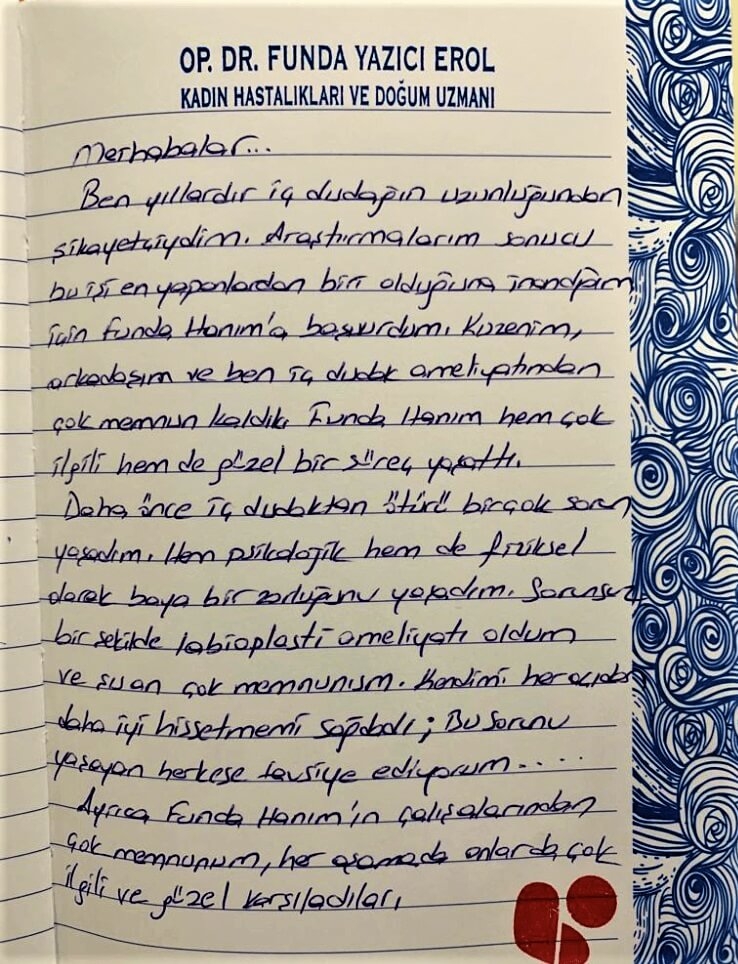 OP. DR. FUNDA YAZICI EROL
KADIN HASTALIKLARI VE DOĞUM UZMANI
Merhabalar...
Ben yıllardır iç dudağın uzunluğundan
şikayetçiydim. Araştırmalarım sonucu
bu işi en yapanlardan biri olduğuna inandığım
için Funda Hanım'a başvurdum. Kuzenim,
arkadaşım ve ben iç dudak ameliyatından
çok memnun kaldık. Funda Hanım hem çok
ilgili hem de güzel bir süreç yaşattı.
Daha önce iç dudaktan ötürü birçok sorun
yaşadım. Hem psikolojik hem de fiziksel
olarak baya bir zorluğunu yaşadım. Sorunsuz
bir şekilde labioplasti ameliyatı oldum
ve şuan çok memnunum. Kendimi her açıdan
daha iyi hissetmemi sağladı; Bu sorunu
yaşayan herkese tavsiye ediyorum.....
Ayrıca Funda Hanım'ın çalışalarından
çok memnunum, her aşamada onlarda çok
ilgili ve güzel karşıladılar.